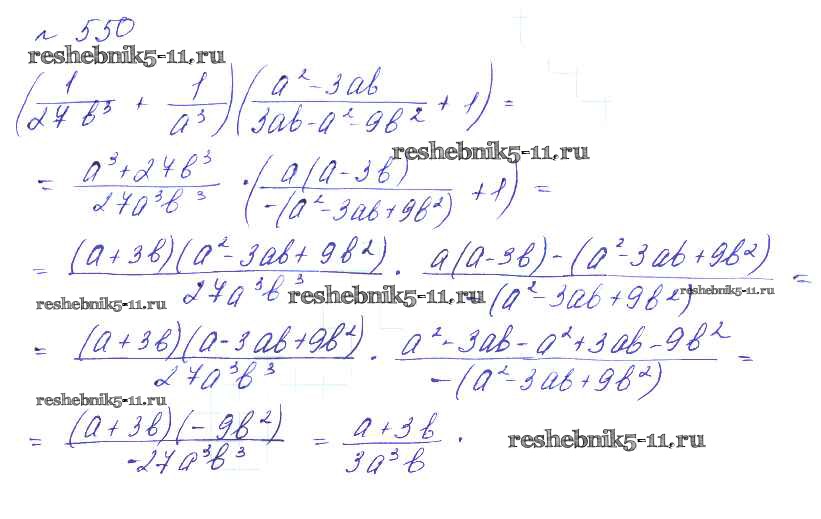 № 550
reshebnik5-11.ru
(1/(27b³) + 1/a³)((a² - 3ab)/(3ab - a² - 9b²) + 1) =
reshebnik5-11.ru
= (a³ + 27b³)/(27a³b³) · (a(a - 3b)/(-(a² - 3ab + 9b²)) + 1) =
= (a + 3b)(a² - 3ab + 9b²)/(27a³b³) · (a(a - 3b) - (a² - 3ab + 9b²))/(-(a² - 3ab + 9b²)) =
reshebnik5-11.ru reshebnik5-11.ru reshebnik5-11.ru
= (a + 3b)(a - 3ab + 9b²)/(27a³b³) · (a² - 3ab - a² + 3ab - 9b²)/(-(a² - 3ab + 9b²)) =
reshebnik5-11.ru
= (a + 3b)(- 9b²)/(-27a³b³) = (a + 3b)/(3a³b) .
reshebnik5-11.ru